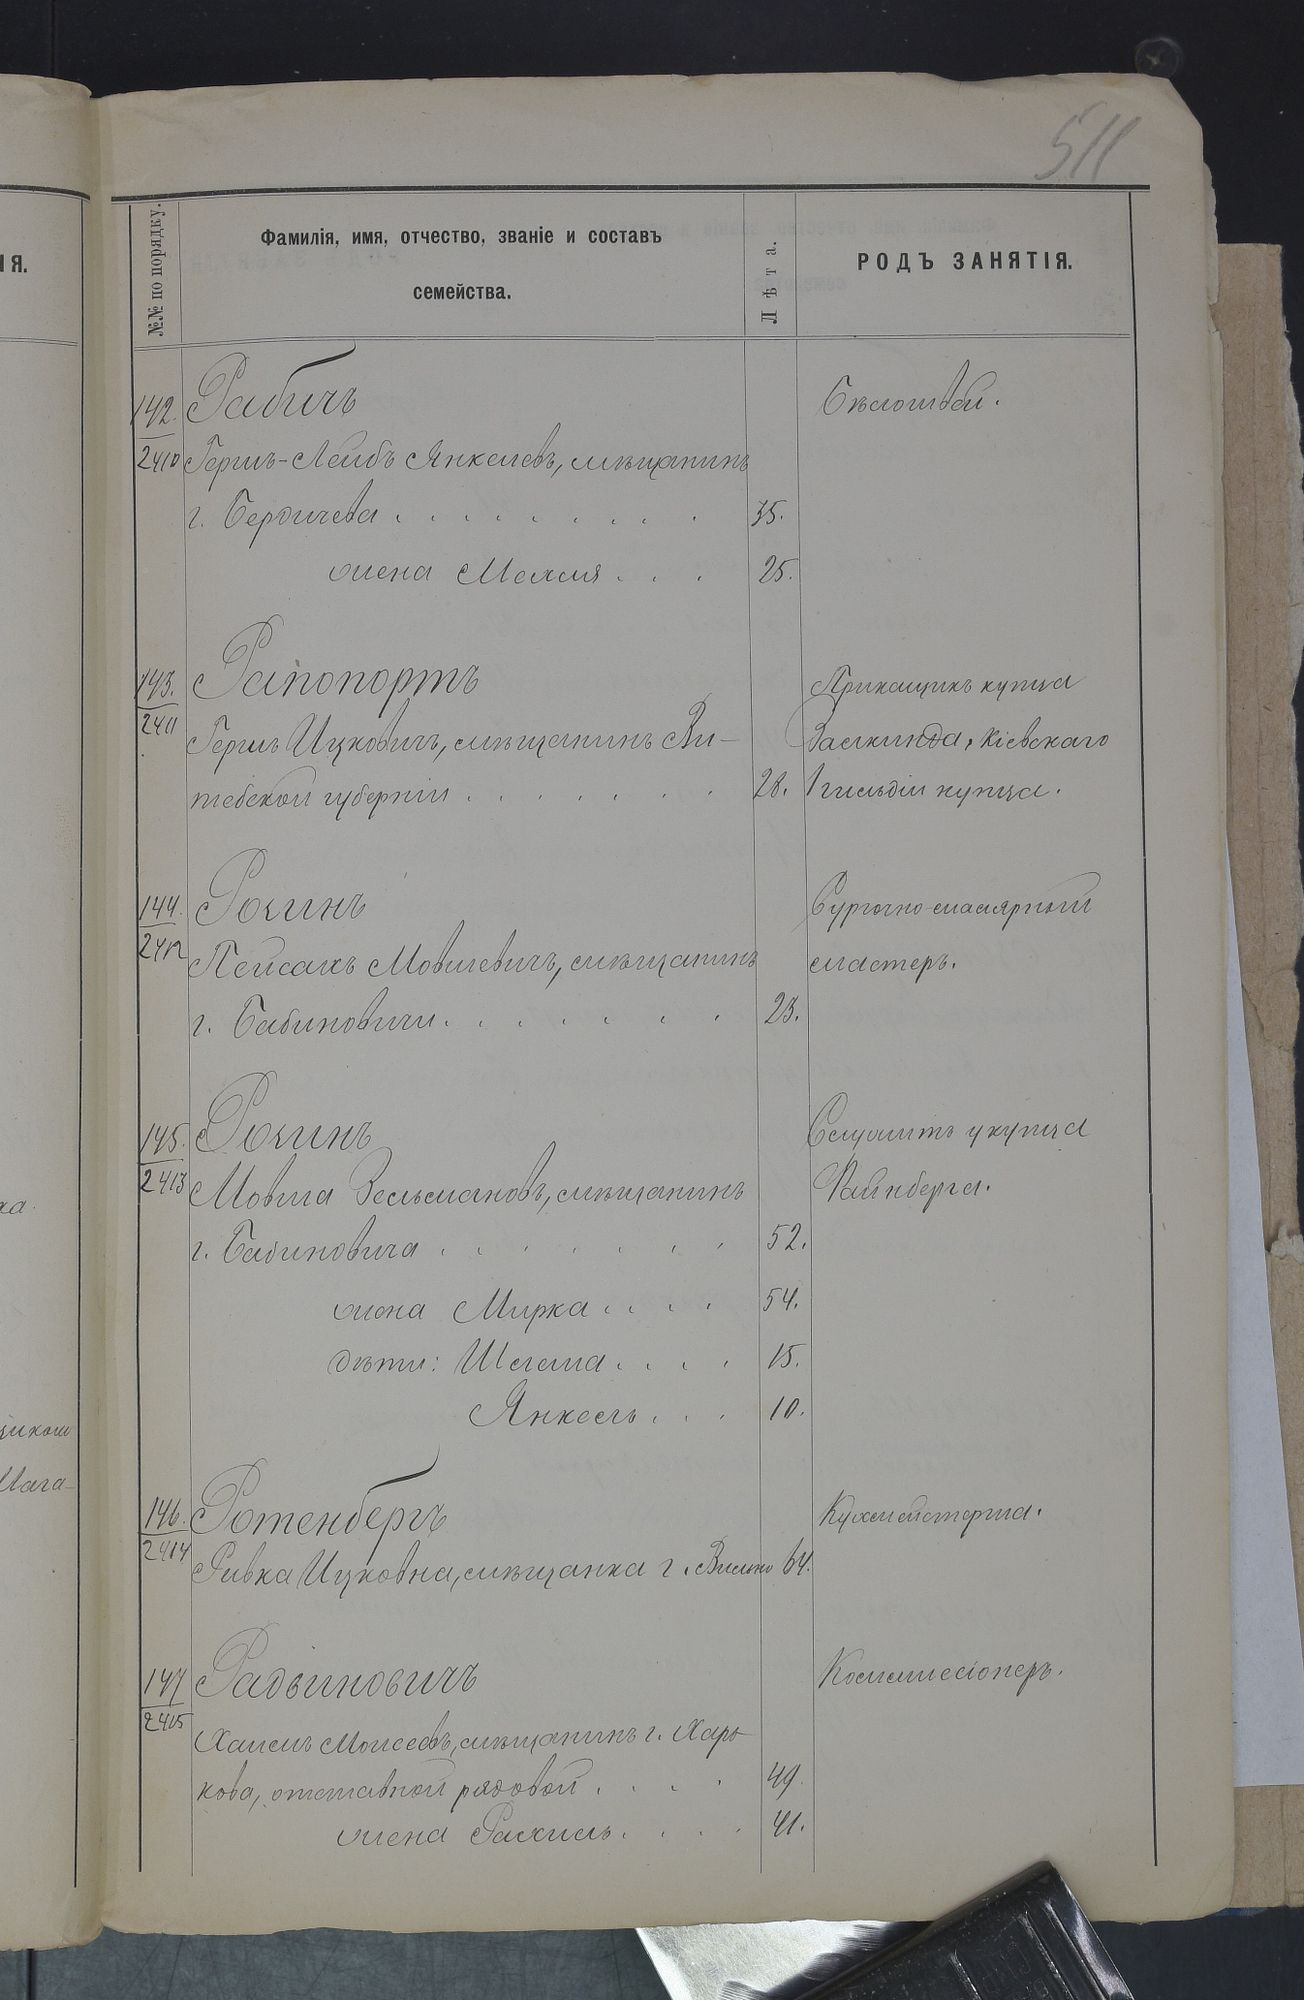 511
ІЯ.
№№ по порядку.
Фамилія, имя, отчество, званіе и составъ
семейства.
Лѣта.
РОДЪ ЗАНЯТІЯ.
142. Рабичъ
Бѣлошвеи.
2410 Гершъ-Лейбъ Янкелевъ, мѣщанинъ
г. Бердичева . . . . . . . . . 35.
жена Малня . . . 25.
143. Рапопортъ
Прикащикъ купца
2411 Гершъ Ицковичъ, мѣщанинъ Ви-
Залкинда, Кіевскаго
тебской губерніи . . . . . . . 28.
1 гильдіи купца.
144. Рохинъ
Сургочно-малярный
2412 Пейсахъ Мовшевичъ, мѣщанинъ
мастеръ.
г. Бабиновичи . . . . . . . 23.
145. Рохинъ
Служитъ у купца
2413 Мовша Зельмановъ, мѣщанинъ
Файнберга.
г. Бабиновича . . . . . . . 52.
жена Мирка . . . . 54.
дѣти: Шлема . . . . 15.
Янкель . . . 10.
146. Ротенбергъ
Кухмистерша.
2414 Ривка Ицковна, мѣщанка г. Вильно 64.
147 Радвиновичъ
Коммиссіонеръ.
2415
Хаимъ Моисеевъ, мѣщанинъ г. Харь-
кова, отставной рядовой . . . . 49.
жена Рахиль . . . . 41.